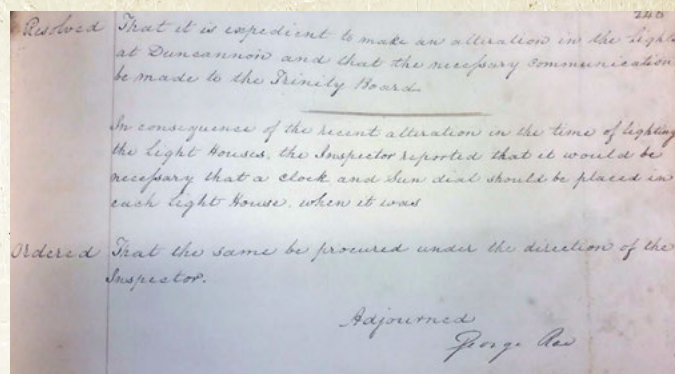 246
Resolved That it is expedient to make an alteration in the Lights
at Duncannon and that the necessary communication
be made to the Trinity Board.
In consequence of the recent alteration in the time of lighting
the Light Houses, the Inspector reported that it would be
necessary that a clock and Sun dial should be placed in
each Light House, when it was
Ordered That the same be procured under the direction of the
Inspector.
Adjourned
George